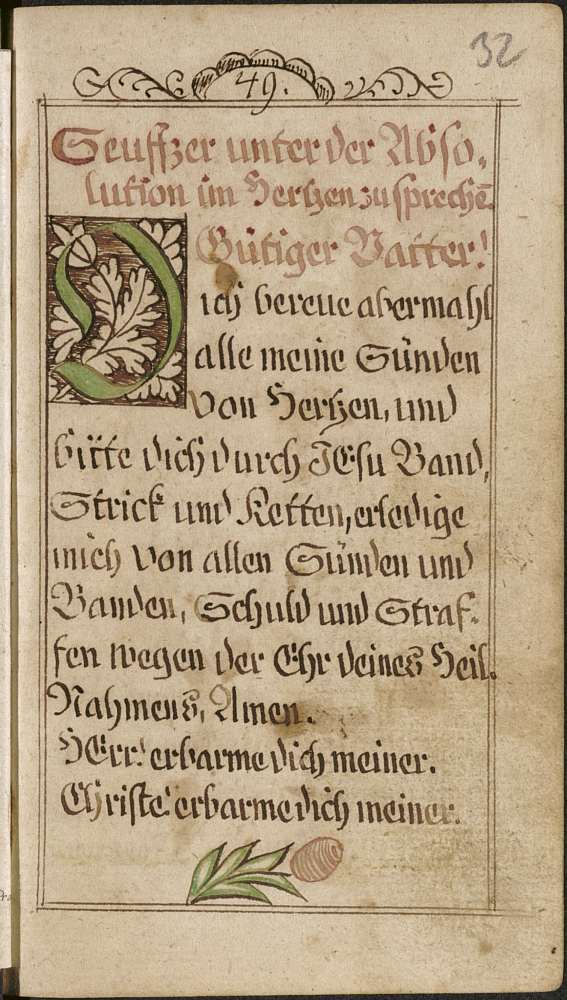 32
49.
Seuffzer unter der Abso,
lution im Hertzen zu sprechē.
O Gütiger Vatter!
ich bereue abermahl
alle meine Sünden
von Hertzen, und
bitte dich durch JEsu Band,
Strick und Ketten, erledige
mich von allen Sünden und
Banden, Schuld und Straf-
fen wegen der Ehr deines Heil.
Nahmens, Amen.
HErr! erbarme dich meiner.
Christe! erbarme dich meiner.